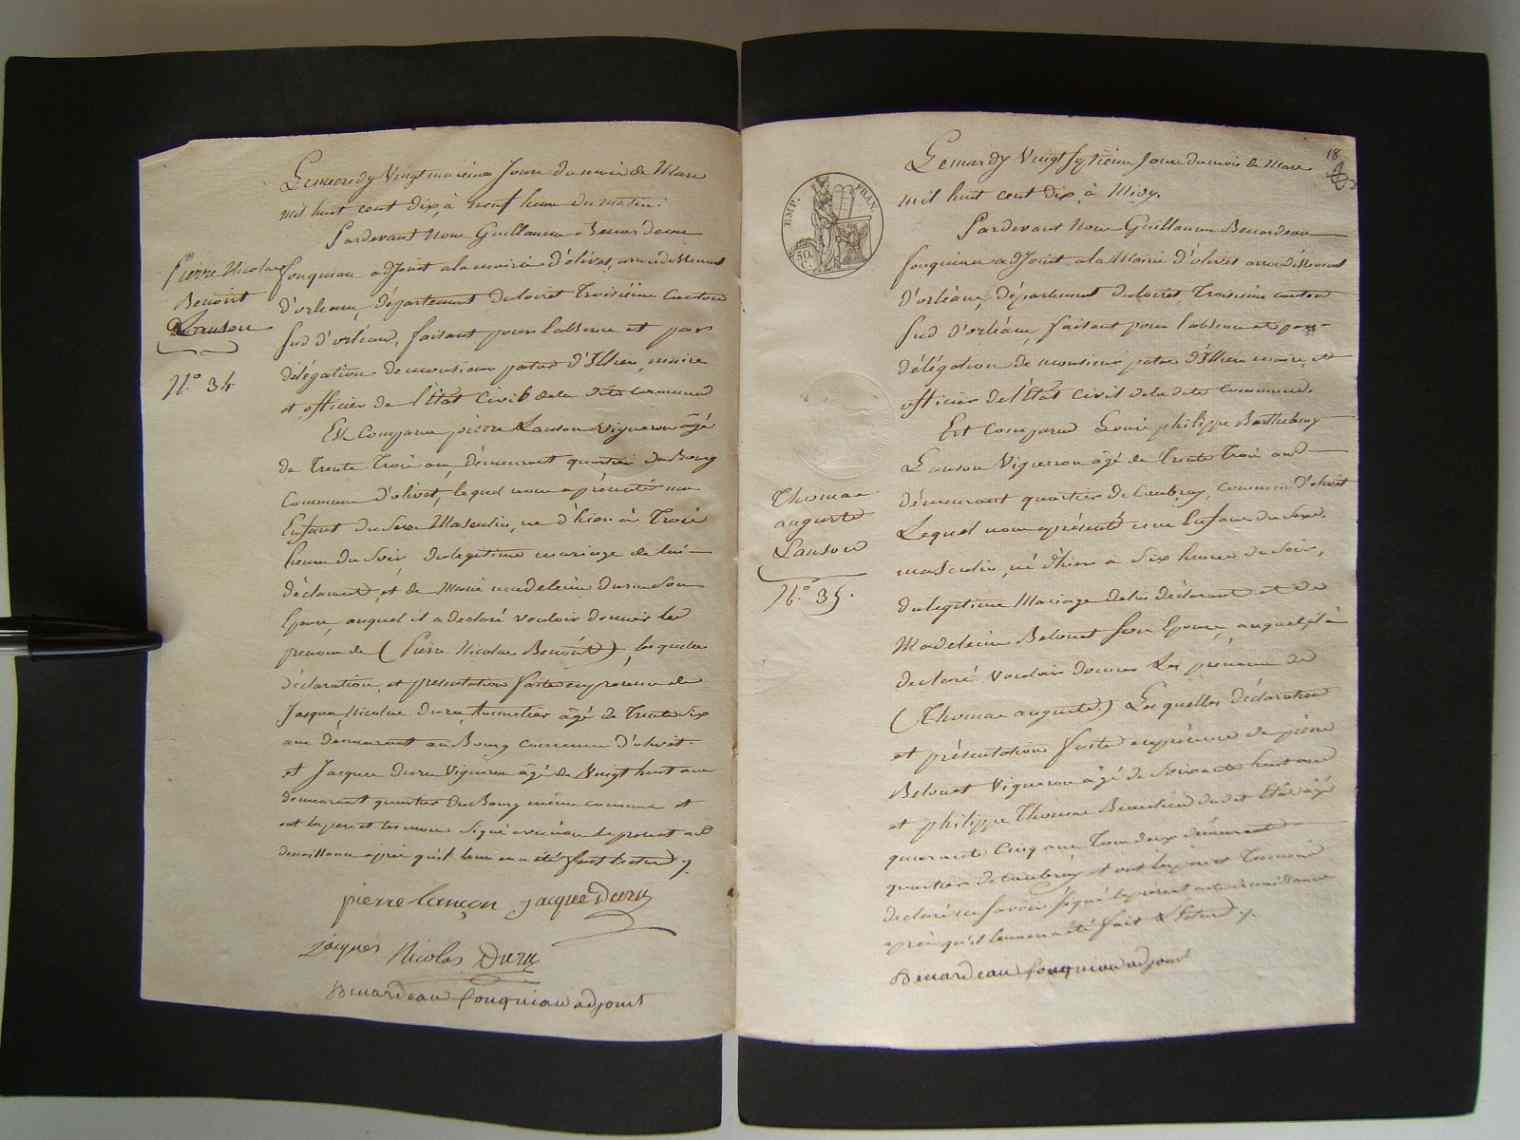 Pierre Nicolas
Benoist
Lanson
N.° 34
mil huit cent dix, à neuf heure du matin.
Pardevant Nous Guillaume Benardeau
fouqueau adjoint a la mairie d'olivet, arrondissement
d'orleans, département du loiret Troisiéme Canton
Sud d'orléans, faisant pour l'absence et par
délégation de monsieur patas d'Illiers, maire
et officier de l'état Civil de la dite Commune
Est Comparu pierre Lanson Vigneron âgé
de Trente Trois ans, demeurant quartier du Bourg
Commune d'olivet, lequel nous a présenté un
Enfant du Sexe Masculin, né d'hier à Trois
heure du Soir, du legitime mariage de lui
déclarant, et de Marie madeleine Duru Son
Epouse, auquel il a declaré vouloir donner les
prenom de (Pierre Nicolas Benoist), lesquelles
déclaration, et présentation faite en presence de
Jacque Nicolas duru, tonnelier âgé de Trente Six
ans demeurant au Bourg commune d'olivet.
et Jacque duru Vigneron âgé de Vingt huit ans
demeurant quartier du Bourg même commune et
ont les pere et temoins Signé avec nous le present acte
de naissance après qu'il leur en a été fait lecture
pierre lançon jacque Duru
jacques Nicolas Duru
Benardeau fouqueau adjoint
18
EMP. FRAN.
50
C.
Le mardy Vingt Septième Jour du mois de Mars
mil huit cent dix, à Midy.
Pardevant Nous Guillaume Benardeau
fouqueau adjoint a la Mairie d'olivet arrondissement
d'orléans, département du loiret, Troisieme canton
Sud d'orléans, faisant pour l'absence et par
délégation de monsieur patas d'Illiers maire, et
officier de l'état Civil de la dite Commune.
Est Comparu Louis philippe Barthelemy
Lanson Vigneron âgé de Trente Trois ans
démeurant quartier de Caubray, commune d'olivet
Lequel nous a présenté un Enfant du Sexe
masculin, né d'hier a Six heures du Soir,
du legitime Mariage de lui déclarant et de
Madeleine Belouet Son Epouse, auquel il à
declaré vouloir donner Les prénoms de
(Thomas auguste.) Lesquelles déclaration
et présentation faite en présence de pierre
Belouet Vigneron âgé de Soixante huit ans
et philippe Thomas Beaulieu dudit Etat âgé
quarante Cinq ans Tous deux démeurant
quartier de Caubray et ont les pere et Temoins
declaré ne Savoir Signé le present acte de naissance
après qu'il leur en a été fait Lecture
Benardeau fouqueau adjoint
Thomas
auguste
Lanson
N.° 35.